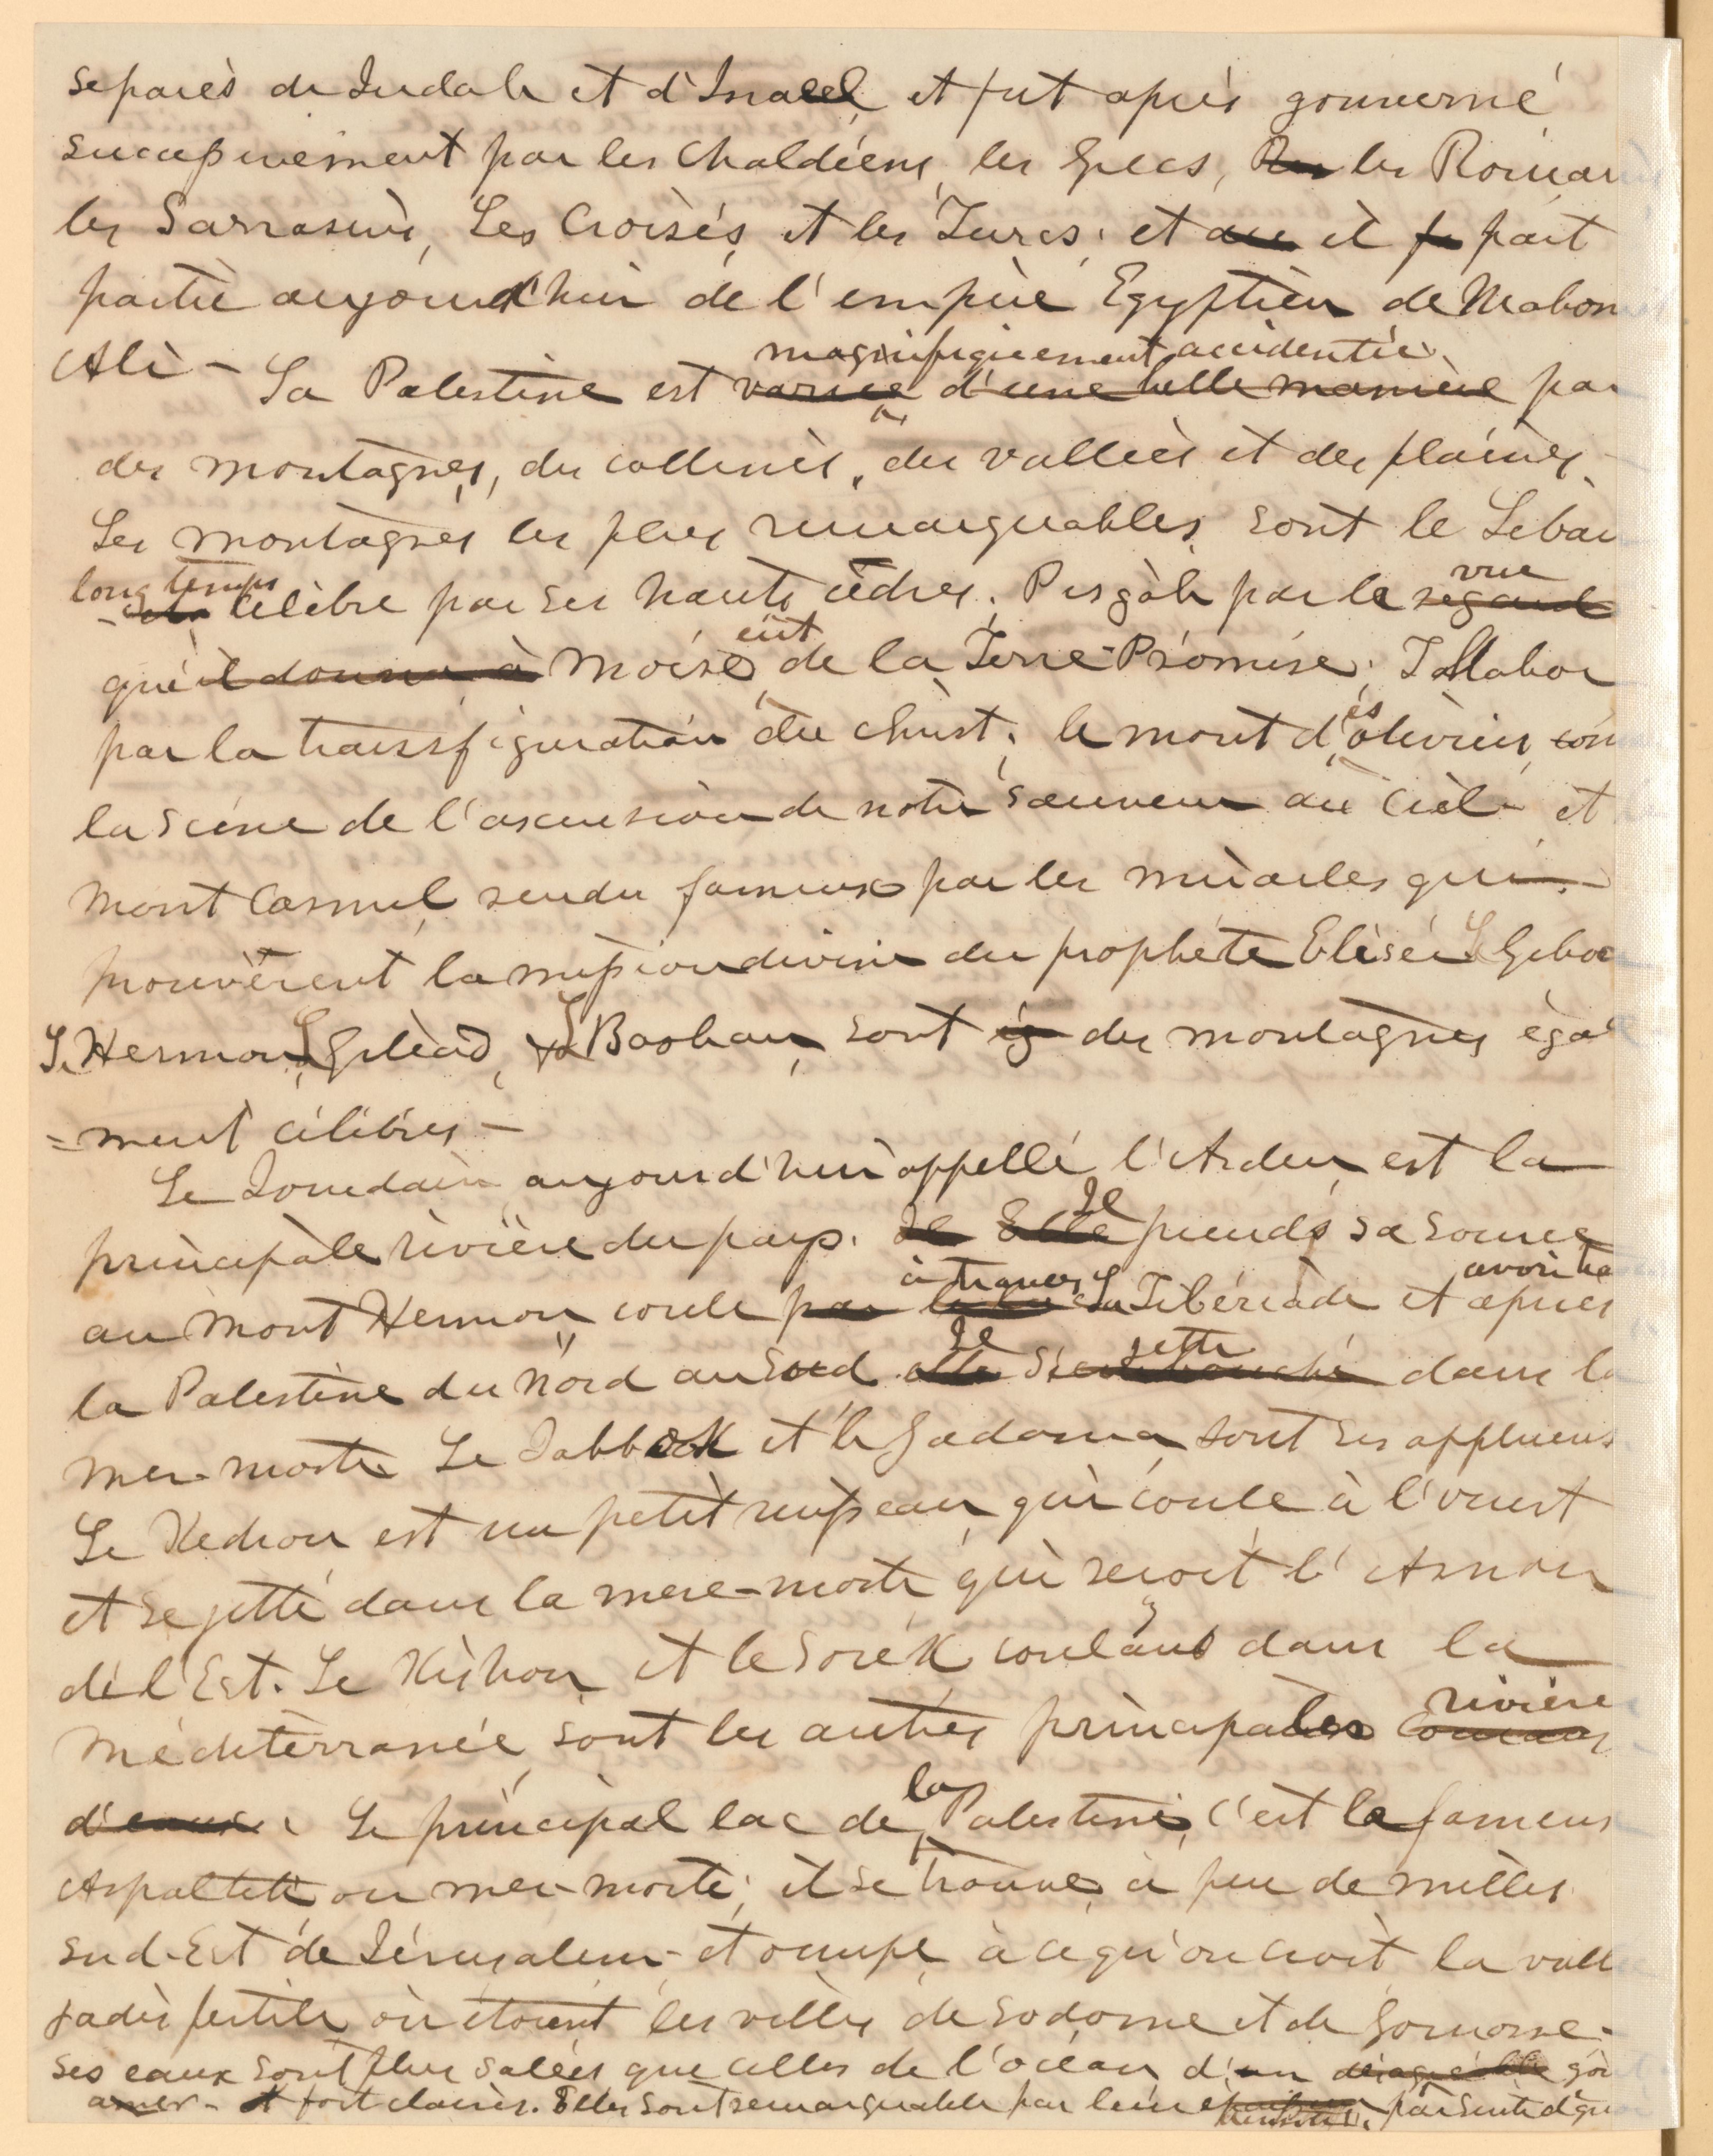 separés de Judah et d'Israel, et fut après gouverné
successivement par les Chaldéens, les Grecs, les Romains
les Sarrasins, Les Croisés, et les Turcs; et il fait
partie aujourd'hui de l'empire Egyptien de Mahom
Ali - La Palestine est magnifiquement accidentée
varieé d'une belle manière par
des montagnes, des collines, des vallées et des plaines.
Les montagnes les plus remarquables, sont le Liban
long temps célèbre par ses hauts cèdres; Pisgàh par la vue regard
qu'il donna à Moïse eût de la Terre-Promise; Thabor
par la transfiguration du Christ; le mont des oliviers, com
la scène de l'ascension de notre Sauveur au Ciel - et
Mont Carmel, rendu fameux par les miracles qui
prouvèrent la mission divine du prophète Elisée, Le Gilboa
L'Hermon, Le Giléad, Le Bashan, sont des montagnes égal
=ment célèbres -
Le Jourdain aujourd'hui appellé l'Arden, est la
principàle rivière du pays. Il Elle Il prends sa source
au Mont Hermon, coule par à travers La Tibériàde et après avoir tra
la Palestine du Nord au Sud elle Il se jette dans la
mer-morte. Le Jabbock et le Gadara, sont ses affluens
Le Kedron est un petit ruisseau, qui coule à l'ouest
et se jette dans la mere-morte, qui reçoit l'Arnon
de l'Est. Le Kishon, et le Sorek, coulant dans la
Méditerranée, sont les autres principales rivières
d'eaux. Le principal lac de la Palestine, c'est le fameux
Aspaltite ou mer-morte; il se trouve à peu de milles
sud-Est de Jérusalem - et occupe, à ce qu'on croit, la vall
jadis fertile où étoient les villes de Sodome et de Gomorre.
Ses eaux sont plus salées que celles de l'océan, d'un désagréable goû
amer - et fort claires. Elles sont remarquable par leur pésanteur